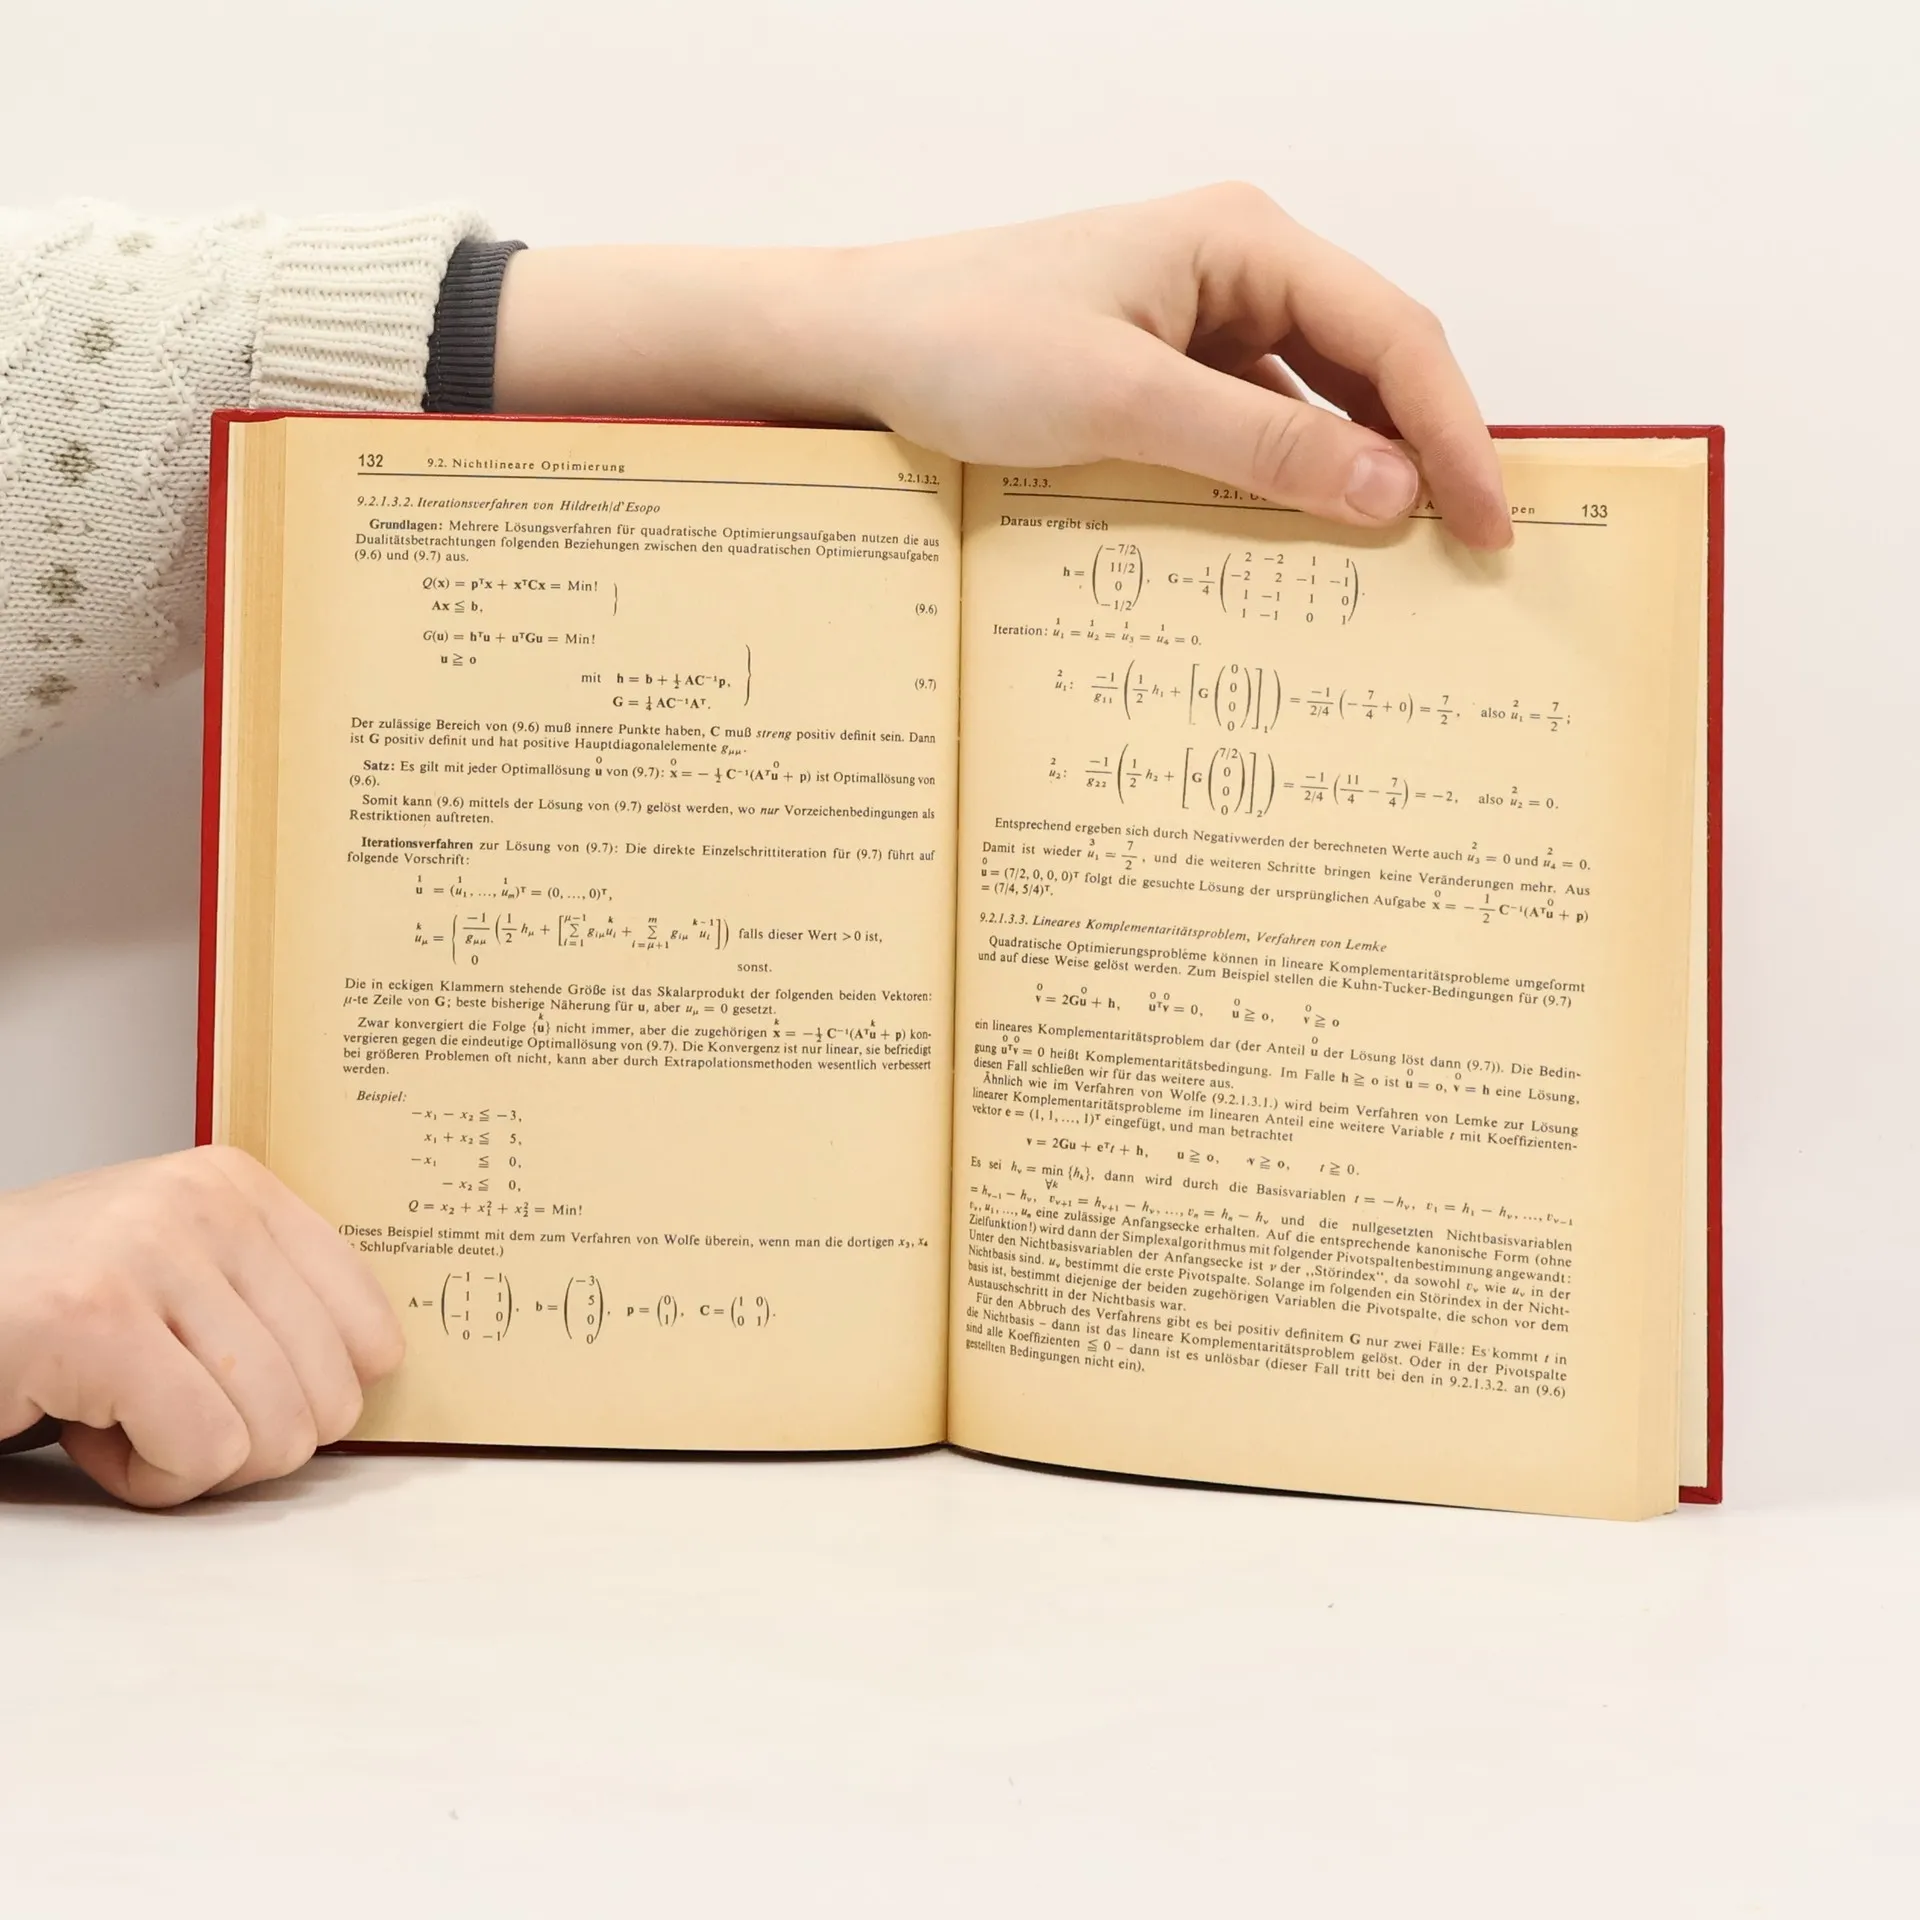 132 9.2. Nichtlineare Optimierung 9.2.1.3.2.
9.2.1.3.2. Iterationsverfahren von Hildreth/d'Esopo
Grundlagen: Mehrere Lösungsverfahren für quadratische Optimierungsaufgaben nutzen die aus
Dualitätsbetrachtungen folgenden Beziehungen zwischen den quadratischen Optimierungsaufgaben
(9.6) und (9.7) aus.
Q(x) = pᵀx + xᵀCx = Min!
Ax ≦ b, (9.6)
G(u) = hᵀu + uᵀGu = Min!
u ≧ o
mit h = b + ½ AC⁻¹p, (9.7)
G = ¼ AC⁻¹Aᵀ.
Der zulässige Bereich von (9.6) muß innere Punkte haben, C muß streng positiv definit sein. Dann
ist G positiv definit und hat positive Hauptdiagonalelemente g_μμ.
Satz: Es gilt mit jeder Optimallösung u⁰ von (9.7): x⁰ = − ½ C⁻¹(Aᵀu⁰ + p) ist Optimallösung von
(9.6).
Somit kann (9.6) mittels der Lösung von (9.7) gelöst werden, wo nur Vorzeichenbedingungen als
Restriktionen auftreten.
Iterationsverfahren zur Lösung von (9.7): Die direkte Einzelschrittiteration für (9.7) führt auf
folgende Vorschrift:
u¹ = (u¹₁, ..., u¹ₘ)ᵀ = (0, ..., 0)ᵀ,
uᵏ_μ = { −1/g_μμ (1/2 h_μ + [Σ_{i=1}^{μ−1} g_iμ uᵏ_i + Σ_{i=μ+1}^{m} g_iμ uᵏ⁻¹_i]) falls dieser Wert > 0 ist,
0 sonst.
Die in eckigen Klammern stehende Größe ist das Skalarprodukt der folgenden beiden Vektoren:
μ-te Zeile von G; beste bisherige Näherung für u, aber u_μ = 0 gesetzt.
Zwar konvergiert die Folge {uᵏ} nicht immer, aber die zugehörigen xᵏ = −½ C⁻¹(Aᵀuᵏ + p) kon-
vergieren gegen die eindeutige Optimallösung von (9.7). Die Konvergenz ist nur linear, sie befriedigt
bei größeren Problemen oft nicht, kann aber durch Extrapolationsmethoden wesentlich verbessert
werden.
Beispiel:
−x₁ − x₂ ≦ −3,
x₁ + x₂ ≦ 5,
−x₁ ≦ 0,
− x₂ ≦ 0,
Q = x₂ + x₁² + x₂² = Min!
(Dieses Beispiel stimmt mit dem zum Verfahren von Wolfe überein, wenn man die dortigen x₃, x₄
Schlupfvariable deutet.)
A = (−1 −1; 1 1; −1 0; 0 −1), b = (−3; 5; 0; 0), p = (0; 1), C = (1 0; 0 1).
9.2.1.3.3. 9.2.1. 133
Daraus ergibt sich
h = (−7/2; 11/2; 0; −1/2), G = 1/4 (2 −2 1 1; −2 2 −1 −1; 1 −1 1 0; 1 −1 0 1).
Iteration: u¹₁ = u¹₂ = u¹₃ = u¹₄ = 0.
u²₁: −1/g₁₁ (1/2 h₁ + [G (0; 0; 0; 0)]₁) = −1/(2/4) (−7/4 + 0) = 7/2, also u²₁ = 7/2;
u²₂: −1/g₂₂ (1/2 h₂ + [G (7/2; 0; 0; 0)]₂) = −1/(2/4) (11/4 − 7/4) = −2, also u²₂ = 0.
Entsprechend ergeben sich durch Negativwerden der berechneten Werte auch u²₃ = 0 und u²₄ = 0.
Damit ist wieder u³₁ = 7/2, und die weiteren Schritte bringen keine Veränderungen mehr. Aus
u⁰ = (7/2, 0, 0, 0)ᵀ folgt die gesuchte Lösung der ursprünglichen Aufgabe x⁰ = − 1/2 C⁻¹(Aᵀu⁰ + p)
= (7/4, 5/4)ᵀ.
9.2.1.3.3. Lineares Komplementaritätsproblem, Verfahren von Lemke
Quadratische Optimierungsprobleme können in lineare Komplementaritätsprobleme umgeformt
und auf diese Weise gelöst werden. Zum Beispiel stellen die Kuhn-Tucker-Bedingungen für (9.7)
v⁰ = 2Gu⁰ + h, u⁰ᵀv⁰ = 0, u⁰ ≧ o, v⁰ ≧ o
ein lineares Komplementaritätsproblem dar (der Anteil u⁰ der Lösung löst dann (9.7)). Die Bedin-
gung u⁰ᵀv⁰ = 0 heißt Komplementaritätsbedingung. Im Falle h ≧ o ist u⁰ = o, v⁰ = h eine Lösung,
diesen Fall schließen wir für das weitere aus.
Ähnlich wie im Verfahren von Wolfe (9.2.1.3.1.) wird beim Verfahren von Lemke zur Lösung
linearer Komplementaritätsprobleme im linearen Anteil eine weitere Variable t mit Koeffizienten-
vektor e = (1, 1, ..., 1)ᵀ eingefügt, und man betrachtet
v = 2Gu + eᵀt + h, u ≧ o, v ≧ o, t ≧ 0.
Es sei h_ν = min {h_k}, dann wird durch die Basisvariablen t = −h_ν, v₁ = h₁ − h_ν, ..., v_ν−1
∀k
= h_ν−1 − h_ν, v_ν+1 = h_ν+1 − h_ν, ..., v_n = h_n − h_ν und die nullgesetzten Nichtbasisvariablen
v_ν, u₁, ..., u_n eine zulässige Anfangsecke erhalten. Auf die entsprechende kanonische Form (ohne
Zielfunktion!) wird dann der Simplexalgorithmus mit folgender Pivotspaltenbestimmung angewandt:
Unter den Nichtbasisvariablen der Anfangsecke ist ν der „Störindex“, da sowohl v_ν wie u_ν in der
Nichtbasis sind. u_ν bestimmt die erste Pivotspalte. Solange im folgenden ein Störindex in der Nicht-
basis ist, bestimmt diejenige der beiden zugehörigen Variablen die Pivotspalte, die schon vor dem
Austauschschritt in der Nichtbasis war.
Für den Abbruch des Verfahrens gibt es bei positiv definitem G nur zwei Fälle: Es kommt t in
die Nichtbasis – dann ist das lineare Komplementaritätsproblem gelöst. Oder in der Pivotspalte
sind alle Koeffizienten ≦ 0 – dann ist es unlösbar (dieser Fall tritt bei den in 9.2.1.3.2. an (9.6)
gestellten Bedingungen nicht ein).